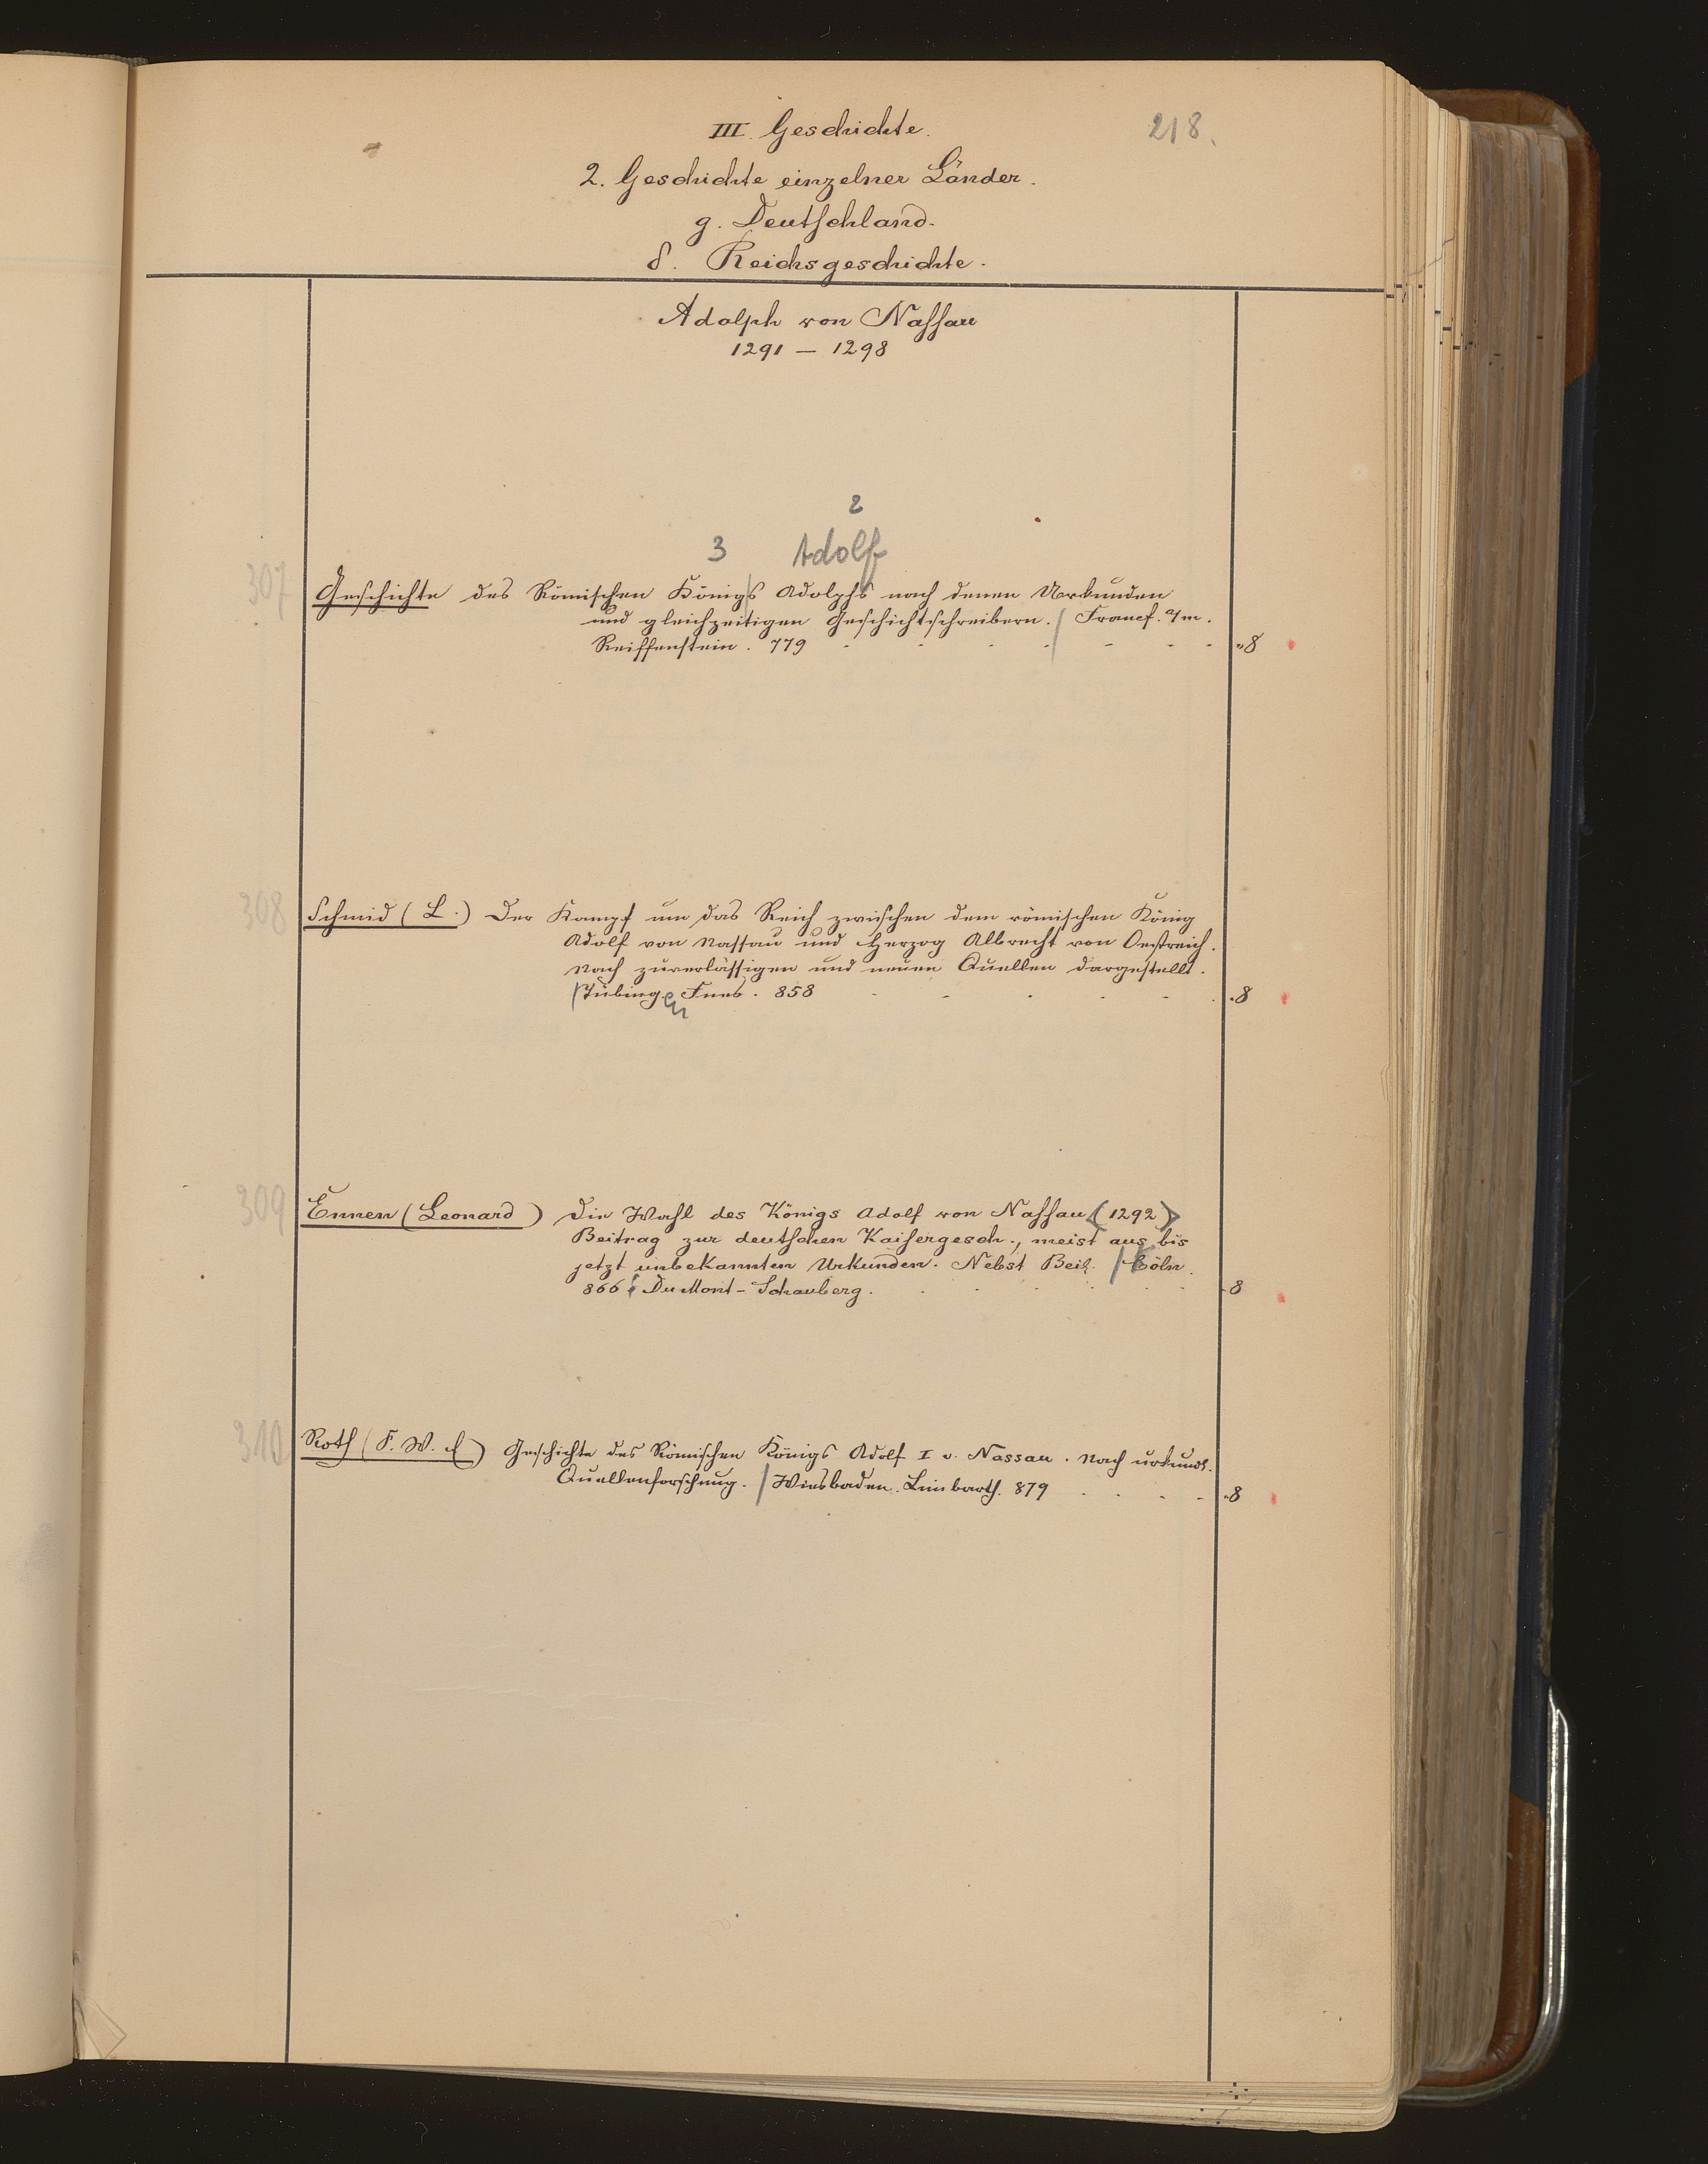 III. Geschichte.
218.
2. Geschichte einzelner Länder.
g. Deutschland.
δ. Reichsgeschichte.
Adolph von Nassau
1291 — 1298
2
3 Adolf
307 Geschichte des Römischen Königs Adolphs nach denen Urkunden
und gleichzeitigen Geschichtschreibern. / Francf. a/m.
Reiffenstein. 779 8
308 Schmid (L.) Der Kampf um das Reich zwischen dem römischen König
Adolf von Nassau und Herzog Albrecht von Oestreich.
Nach zuverlässigen und neuen Quellen dargestellt.
/ Tübing. Fues. 858 8
309 Ennen (Leonard) Die Wahl des Königs Adolf von Nassau (1292)
Beitrag zur deutschen Kaisergesch., meist aus bis
jetzt unbekannten Urkunden. Nebst Beil. / Cöln.
866 DuMont-Schauberg. 8
310 Roth (F. W. E.) Geschichte des Römischen Königs Adolf I v. Nassau. Nach urkundl.
Quellenforschung. / Wiesbaden. Limbarth. 879 8